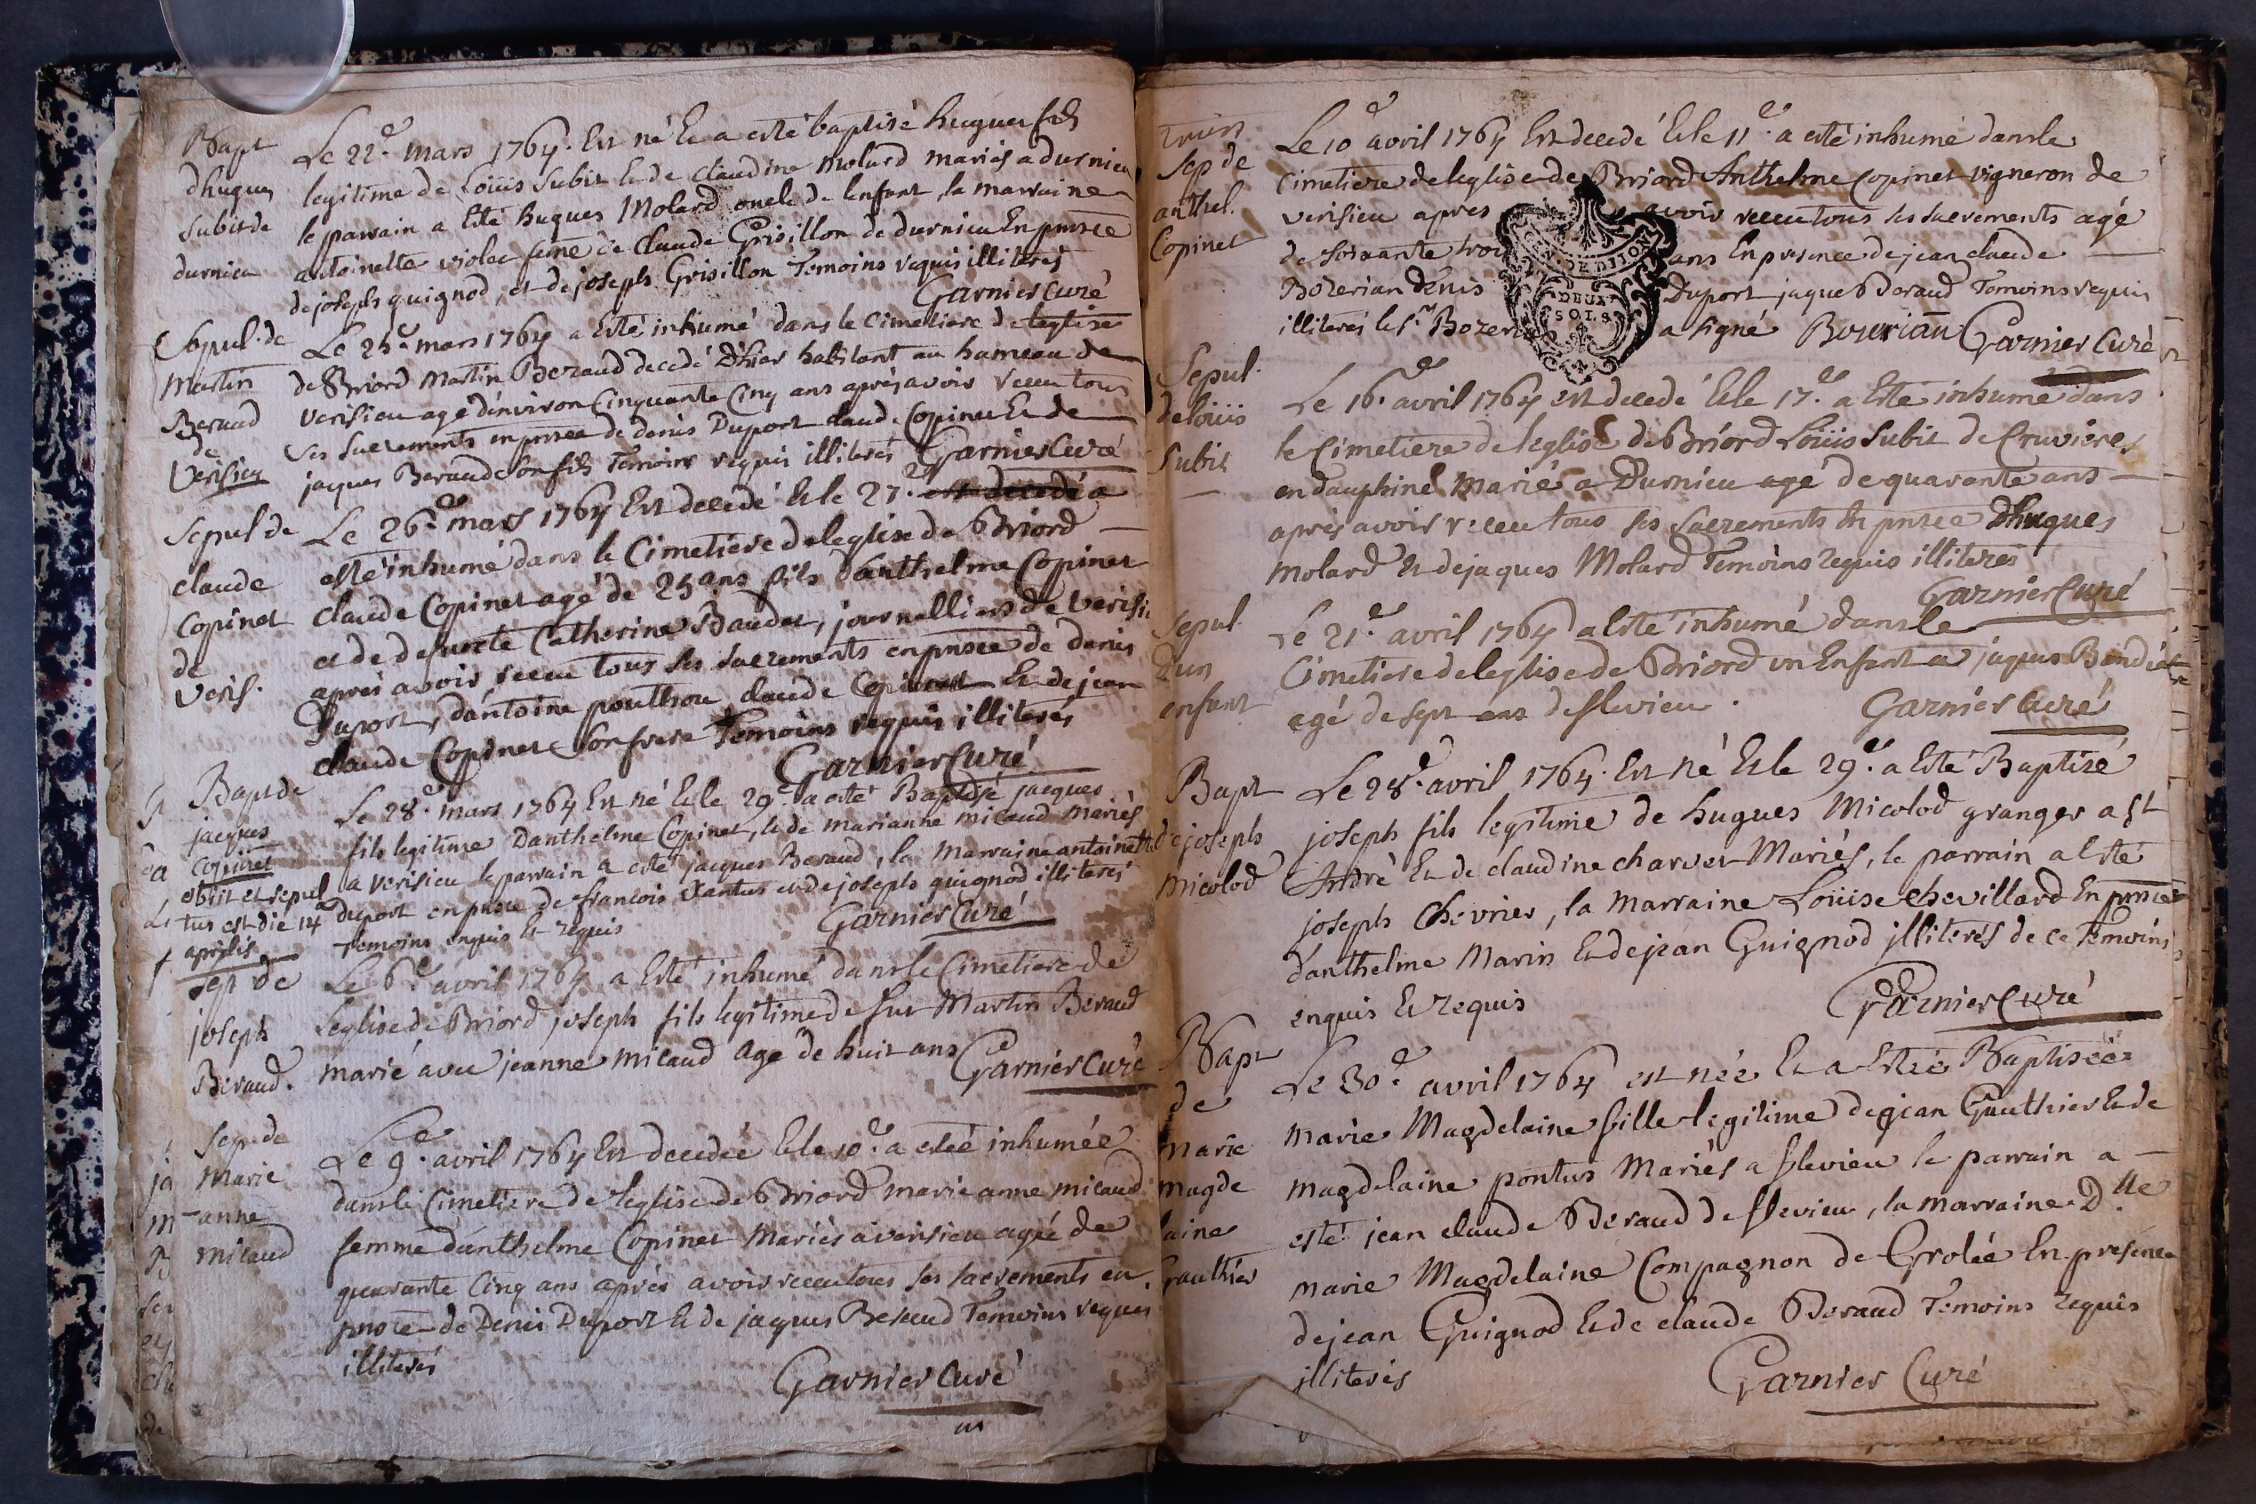 Bapt
dhugues
Subit de
durnieu
Le 22.e mars 1764. Est né Et a esté baptisé hugues fils
legitime de Loüis Subit Et de claudine Molard mariés a durnieu
le parrain a Esté hugues Molard oncle de lenfant, la marraine
antoinette violet feme de claude Grisillon de durnieu En pnsce
de joseph guignod, et de joseph Grisillon Temoins requis illiterés
Garnier Curé
Sepul. de
Martin
Beraud
de
Verisieu
Le 25.e mars 1764 a Esté inhumé dans le Cimetiere de leglise
de Briord Martin Beraud decedé D'hier habitant au hameau de
verisieu agé d'environ Cinquante Cinq ans aprés avoir receu tous
ses sacrements en pnsce de denis Duport claude Copinet Et de
jacques Beraud son fils Temoins requis illiterés Garnier Curé
Sepul de
claude
Copinet
de
Veris.
Le 26.e mars 1764 Est decedé Et le 27. est decedé a
esté inhumé dans le Cimetiere de leglise de Briord
claude Copinet agé de 25 ans fils d'anthelme Copinet
et de defuncte Catherine Baudet, journalliers de verisi
aprés avoir receu tous ses sacrements en pnsce de denis
Duport, d'antoine pouthou claude Copinet Et de jean
claude Copinet son frere Temoins requis illiterés
Garnier Curé
Bapt de
jacques
Copinet
obiit et sepul
tus est die 14a
aprilis
Le 28.e mars 1764 Est né Et le 29.e a esté Baptisé jacques
fils legitime Danthelme Copinet, Et de marianne micaud mariés
a verisieu le parrain a esté jacques Beraud, la marraine antoinette
duport en pnsce de francois Xantus et de joseph guignod illiterés
temoins enquis Et requis
Garnier Curé
Sep de
joseph
Beraud.
Le 6.e avril 1764 a Esté inhumé dans le Cimetiere de
Leglise de Briord joseph fils legitime de fut Martin Beraud
marié avec jeanne micaud agé de huit ans Garnier Curé
Sep. de
Marie
anne
micaud
Le 9.e avril 1764 Est decedée Et le 10.e a esteé inhumée
dans le Cimetiere de l'eglise de Briord marie anne micaud
femme d'anthelme Copinet Mariés a verisieu agée de
quarante Cinq ans aprés avoir receu tous ses sacrements en
pnsce de Denis Duport Et de jaques Beraud Temoins requis
illiterés
Garnier Curé
Sep de
anthel.
Copinet
Le 10.e avril 1764 Est decedé Et le 11.e a esté inhumé dans le
cimetiere de leglise de Briord Anthelme Copinet vigneron de
verisieu apres avoir receu tous ses sacrements agé
de soixante trois ans En presence de jean claude
Bozerian Denis Duport jaque Beraud Temoins requis
illiterés le s.r Bozerian a signé Bozerian Garnier Curé
GEN. DE DIJON
DEUX
SOLS
Sepul.
de loüis
Subit
Le 16.e avril 1764 est decedé Et le 17.e a Esté inhumé dans
le Cimetiere de leglise de Briord Loüis Subit de Cruvieres
en dauphiné marié a Durnieu agé de quarante ans
aprés avoir receu tous ses sacrements En pnsce D'hugues
Molard Et de jaques Molard Temoins requis illiterés
Garnier Curé
Sepul.
D'un
enfant
Le 21.e avril 1764 a Esté inhumé dans le
Cimetiere de leglise de Briord un Enfant a jaques
agé de sept ans de flevieu.
Garnier Curé
Bapt
de joseph
micolod
Le 28.e avril 1764. Est né Et le 29.e a Esté Baptisé
joseph fils legitime de hugues Micolod granger a St
André Et de claudine charvet Mariés, le parrain a Esté
joseph Chevrier, la marraine Loüise chevillard En pnsce
d'anthelme Marin Et de jean Guignod illiterés de ce Temoins
enquis Et requis
Garnier Curé
Bapt
de
Marie
magde
laine
Gauthier
Le 30.e avril 1764 est née Et a Esteé Baptisée
marie Magdelaine fille legitime de jean Gauthier Et de
magdelaine pontus Mariés a flevieu le parrain a
esté jean claude Beraud de flevieu, la marraine D.lle
marie Magdelaine Compagnon de Grolée En presence
de jean Guignod Et de claude Beraud Temoins requis
illiterés
Garnier Curé